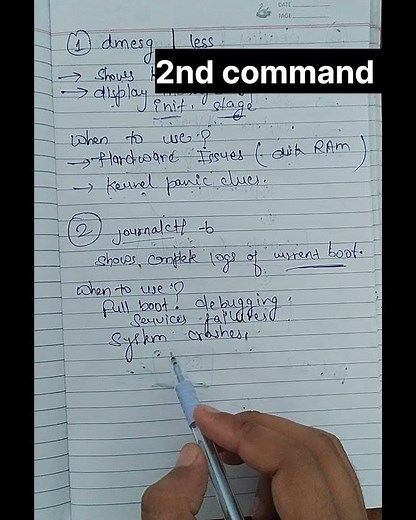 DATE
PAGE
① dmesg | less
2nd command
→ Shows
→ display
init. stage
when to use ?
→ Hardware Issues ( disk RAM )
→ Kernel panic clues.
② journalctl -b
shows complete logs of current boot.
when to use ?
Full boot debugging.
Services failures
System crashes.